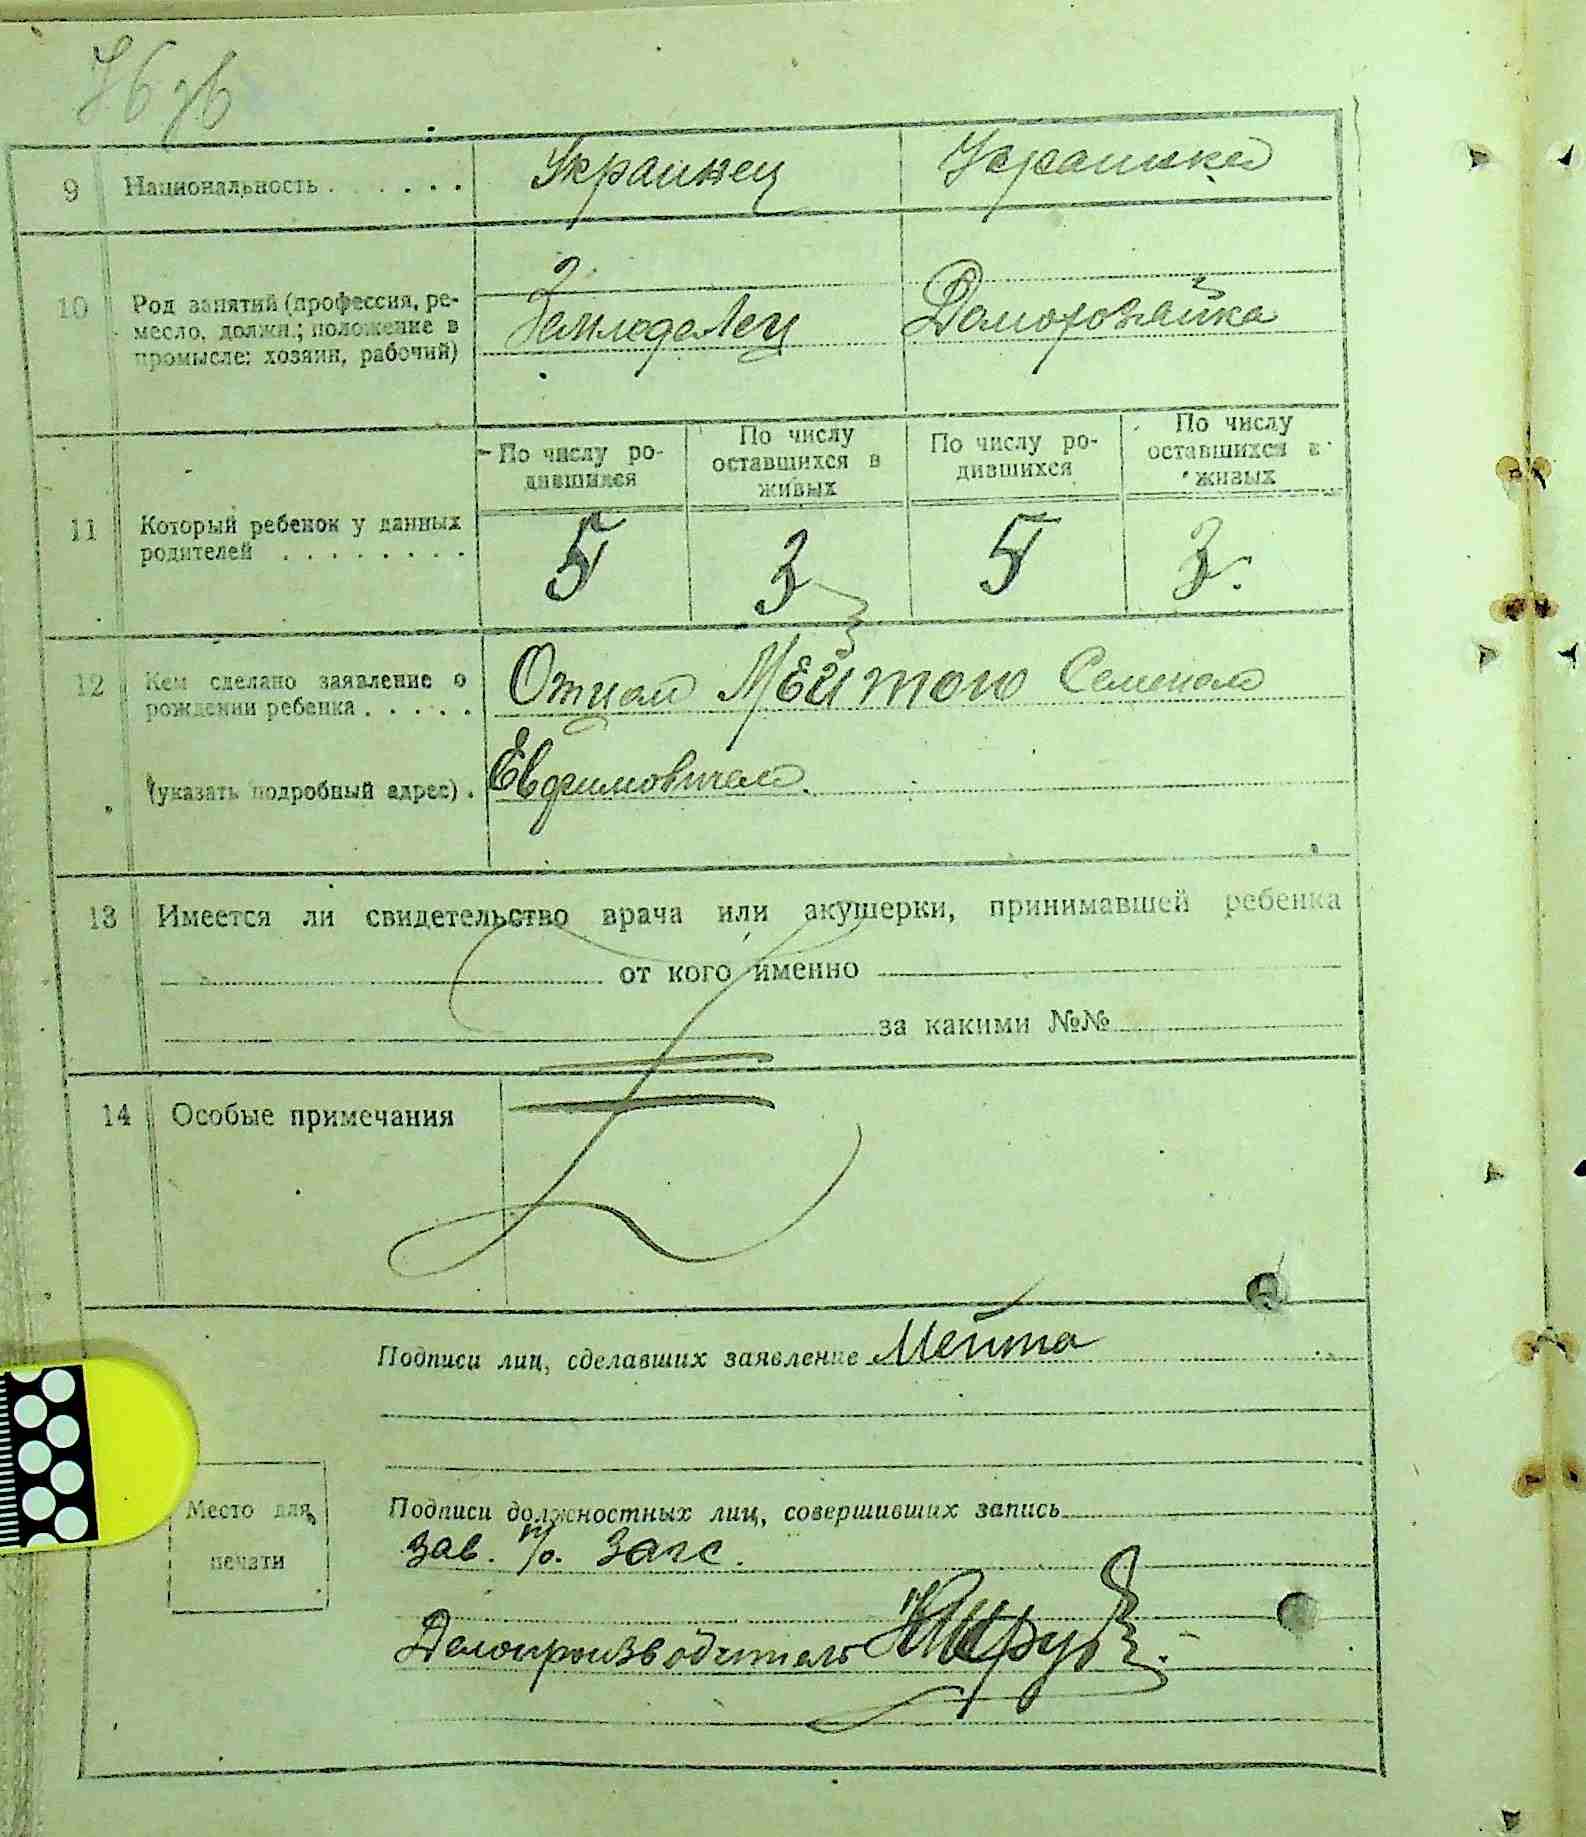 76 76
9 Национальность . . . . . . . Украинец Украинка
10 Род занятий (профессия, ре-
месло, должн.; положение в
промысле: хозяин, рабочий)
Земледелец Доморозяйка
По числу ро-
дившихся
По числу
оставшихся в
живых
По числу ро-
дившихся
По числу
оставшихся в
живых
11 Который ребенок у данных
родителей . . . . . . . .
5 3 5 3.
12 Кем сделано заявление о
рождении ребенка . . . . .
Отцом Мейтою Семеном
(указать подробный адрес) . Евфимовичем.
13 Имеется ли свидетельство врача или акушерки, принимавшей ребенка
от кого именно
за какими №№
14 Особые примечания
Подписи лиц, сделавших заявление Мейта
Место для
печати
Подписи должностных лиц, совершивших запись
Зав. п/о. Загс.
Делопроизводитель